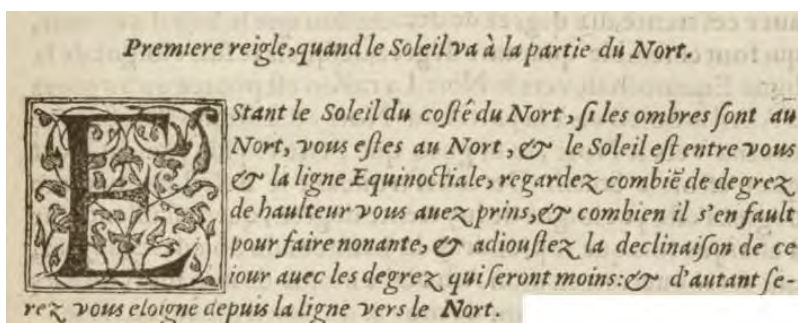 Premiere reigle, quand le Soleil va à la partie du Nort.
EStant le Soleil du costé du Nort, si les ombres sont au
Nort, vous estes au Nort, & le Soleil est entre vous
& la ligne Equinoctiale, regardez combiē de degrez
de haulteur vous auez prins, & combien il s'en fault
pour faire nonante, & adioustez la declinaison de ce
iour auec les degrez qui seront moins: & d'autant se-
rez vous eloigné depuis la ligne vers le Nort.